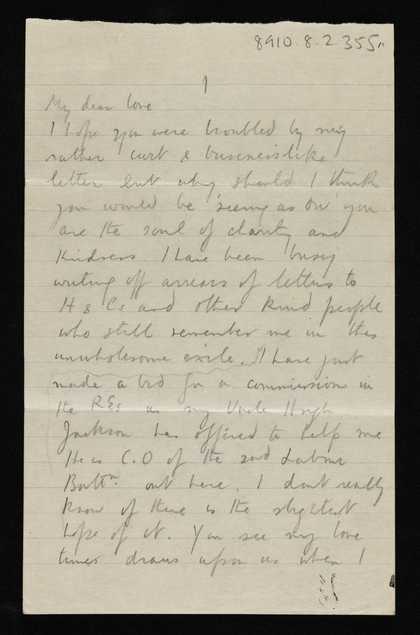 8910.8.2.355
1
My dear love
I hope you were troubled by my
rather curt & businesslike
letter but why should I think
you would be seeing as how you
are the soul of clarity and
kindness. I have been busy
writing off arrears of letters to
H & Co and other kind people
who still remember me in this
unwholesome exile. I have just
made a bid for a commission in
the R.E.s as my Uncle Hugh
Jackson has offered to help me
He is C.O of the 2nd Labour
Battn. out here. I dont really
know if there is the slightest
hope of it. You see my love
times draws upon us when I